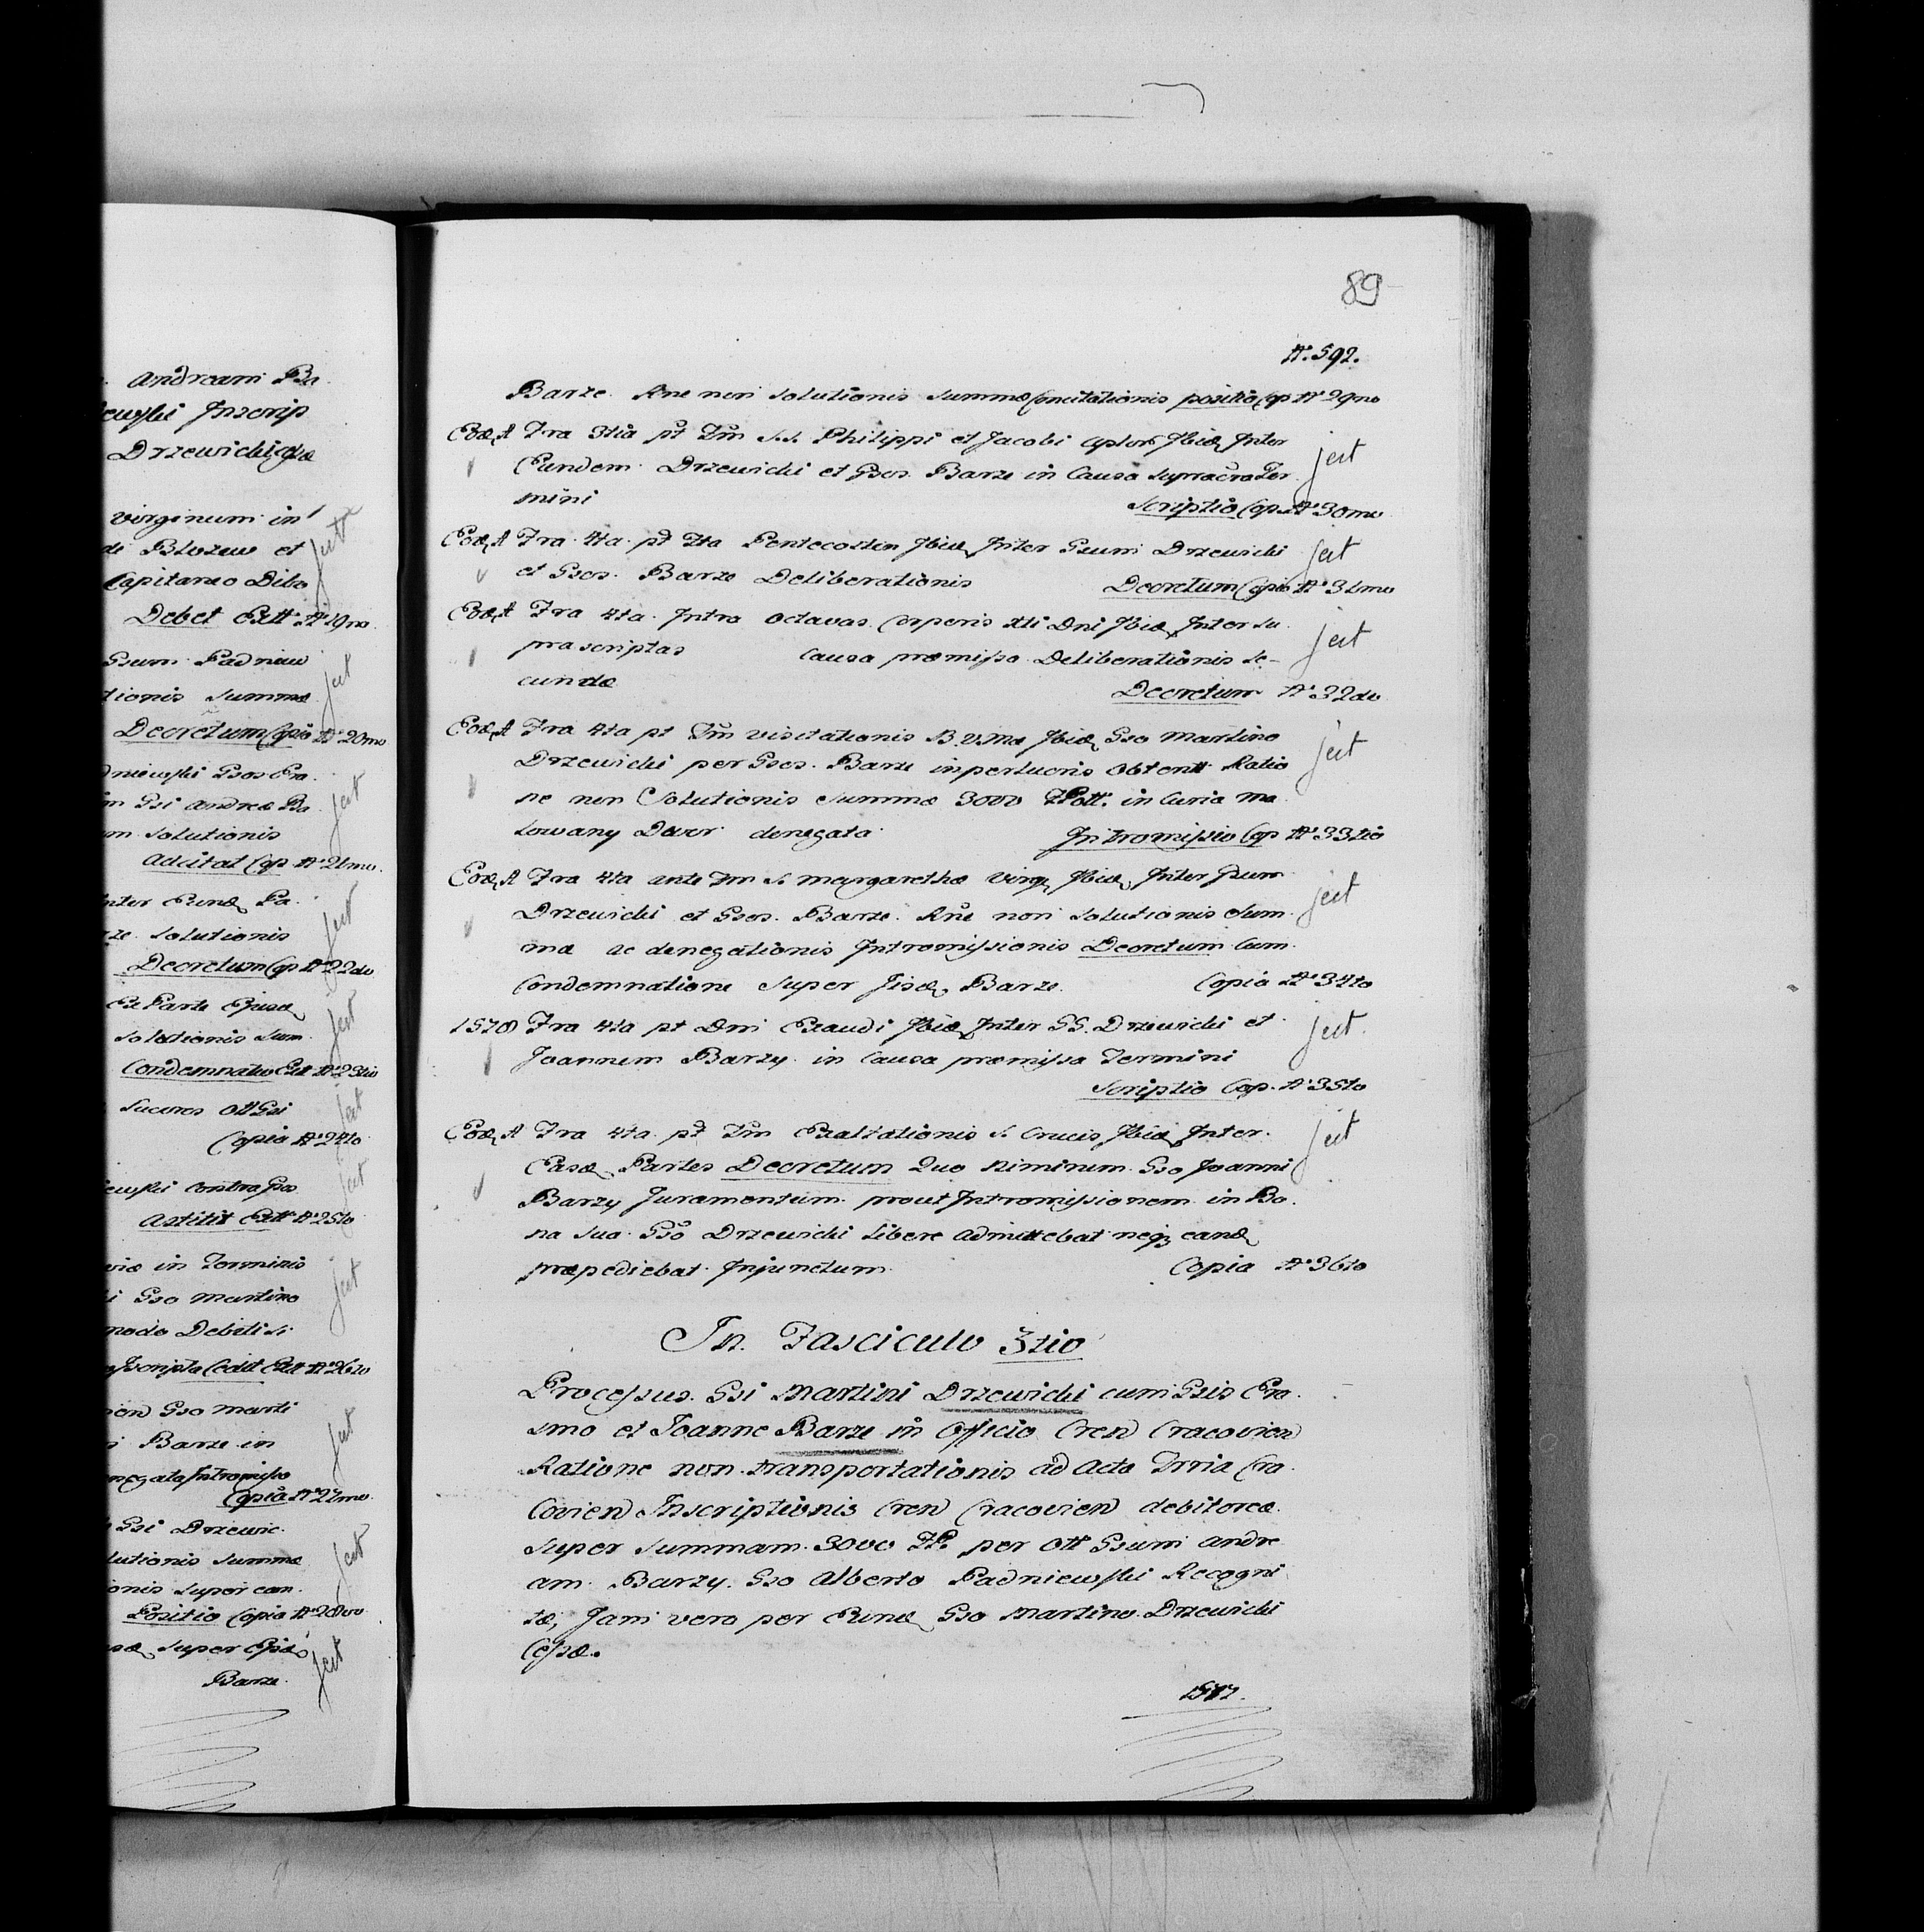 Andream Ba
Inscrip
Drzewicki
virginum in
de Blozew et
Capitaneo Dibo
Debet Extt: N° 19no
Gsum Padniew
tionis Summæ
Decretum Copia N° 20mo
dniewski Gsos Era
m Gsi Andreæ Ba
solutionis
Adcitat Cop N° 21mo
nter Eund Pa
rze solutionis
Decretum Cop N° 22do
Ex Parte Ejusd
solutionis Sum
Condemnatio Ext N° 23tio
Sucores Ott Gsi
Copia N° 24to
ewski contra Gsos
Astitit Extt N° 25to
in Terminis
i Gso Martino
modo Debiti
Inscripta Cedit Ext N° 26to
Gso Marti
i Barze in
negata Intromissio
Copia N° 27mo
Gsi Drzewic
lutionis Summæ
onis super eon
Positio Copia N° 28vo
super
Barze
89
N°. 592.
Barze Rne non solutionis Summæ Concitationis positio Cop N° 29no
Eod A Fra 3tia pt Fm S.S. Philippi et Jacobi Aplor Ibid Inter
Eundem Drzewicki et Gsos Barze in Causa Supracta Ter
mini Scriptio Cop N° 30mo
Eod A Fra 4ta pt Fta Pentecosten Ibid Inter Gsum Drzewicki
et Gsos. Barze Deliberationis Decretum Copia N° 31mo
Eod A Fra 4ta Intra Octavas Corporis Xti Dni Ibid Inter Su
prascriptas Causa præmissa Deliberationis Se-
cundæ Decretum N° 32do
Eod A Fra 4ta pt Fm visitationis B.V.Mæ Ibid Gso Martino
Drzewicki per Gsos Barze in perlucris Obtentt Ratio
ne non Solutionis Summæ 3000 FPoll. in Curia Ma
lowany Dwor denegata Intromissio Cop N° 33tio
Eod A Fra 4ta ante Fm S. Margarethæ Virg Ibid Inter Gsum
Drzewicki et Gsos. Barze. Rne non Solutionis Sum
mæ ac denegationis Intromissionis Decretum Cum
Condemnatione Super Iisd Barze. Copia N° 34to
1578 Fra 4ta pt Dni Exaudi Ibid Inter GG. Drzewicki et
Joannem Barzy in Causa præmissa Termini
Scriptio Cop. N° 35to
Eod A Fra 4ta pt Fm Exaltationis S. Crucis Ibid Inter
Easd Partes Decretum Quo nimirum Gso Joanni
Barzy Juramentum prout Intromissionem in Bo
na sua Gso Drzewicki libere admittebat neq eand
præpediebat Injunctum Copia N° 36to
In. Fasciculo 3tio
Processus. Gsi Martini Drzewicki cum Gsis Era
smo et Joanne Barze in Officio Cren Cracovien
Ratione non transportationis ad Acta Trria Cra
covien Inscriptionis Cren Cracovien debitoreæ
Super Summam 3000 FP. per Ott Gsum Andre
am Barzy. Gso Alberto Padniewski Recogni
tæ, Jam vero per Eund Gso Martino Drzewicki
Cessæ.
1577.